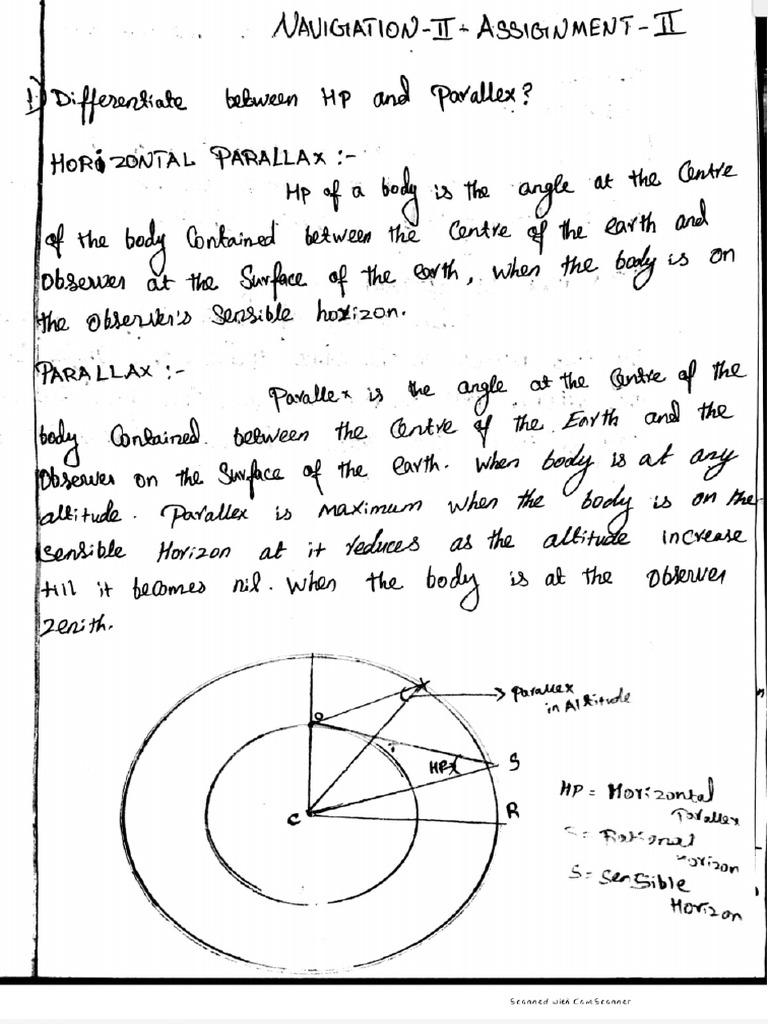 NAVIGIATION-II - ASSIGINMENT-II
1) Differentiate between HP and Parallex?
HORIZONTAL PARALLAX :-
HP of a body is the angle at the Centre
of the body Contained between the Centre of the earth and
Observer at the Surface of the earth, when the body is on
the Observer's Sensible horizon.
PARALLAX :-
Parallex is the angle at the Centre of the
body Contained between the Centre of the Earth and the
Observer on the Surface of the earth. When body is at any
altitude. Parallex is maximum when the body is on the
sensible Horizon at it reduces as the altitude increase
till it becomes nil. When the body is at the Observer
Zenith.
Parallex
in Altitude
O
HP
S
C
R
HP = Horizontal
Parallex
= Rational
Horizon
S = Sensible
Horizon
Scanned with CamScanner